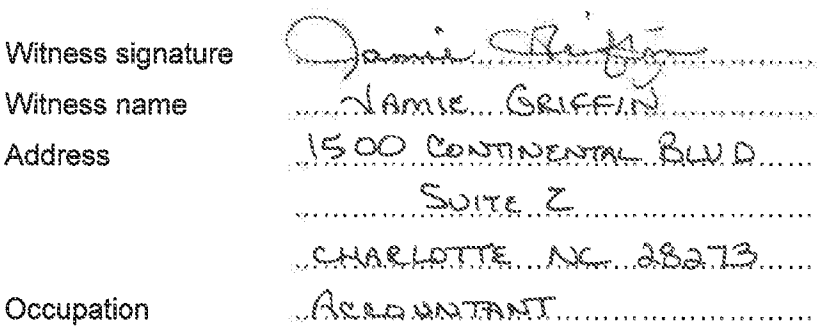 Witness signature Jamie Griffin
Witness name JAMIE GRIFFIN
Address 1500 CONTINENTAL BLVD
SUITE Z
CHARLOTTE NC 28273
Occupation ACCOUNTANT